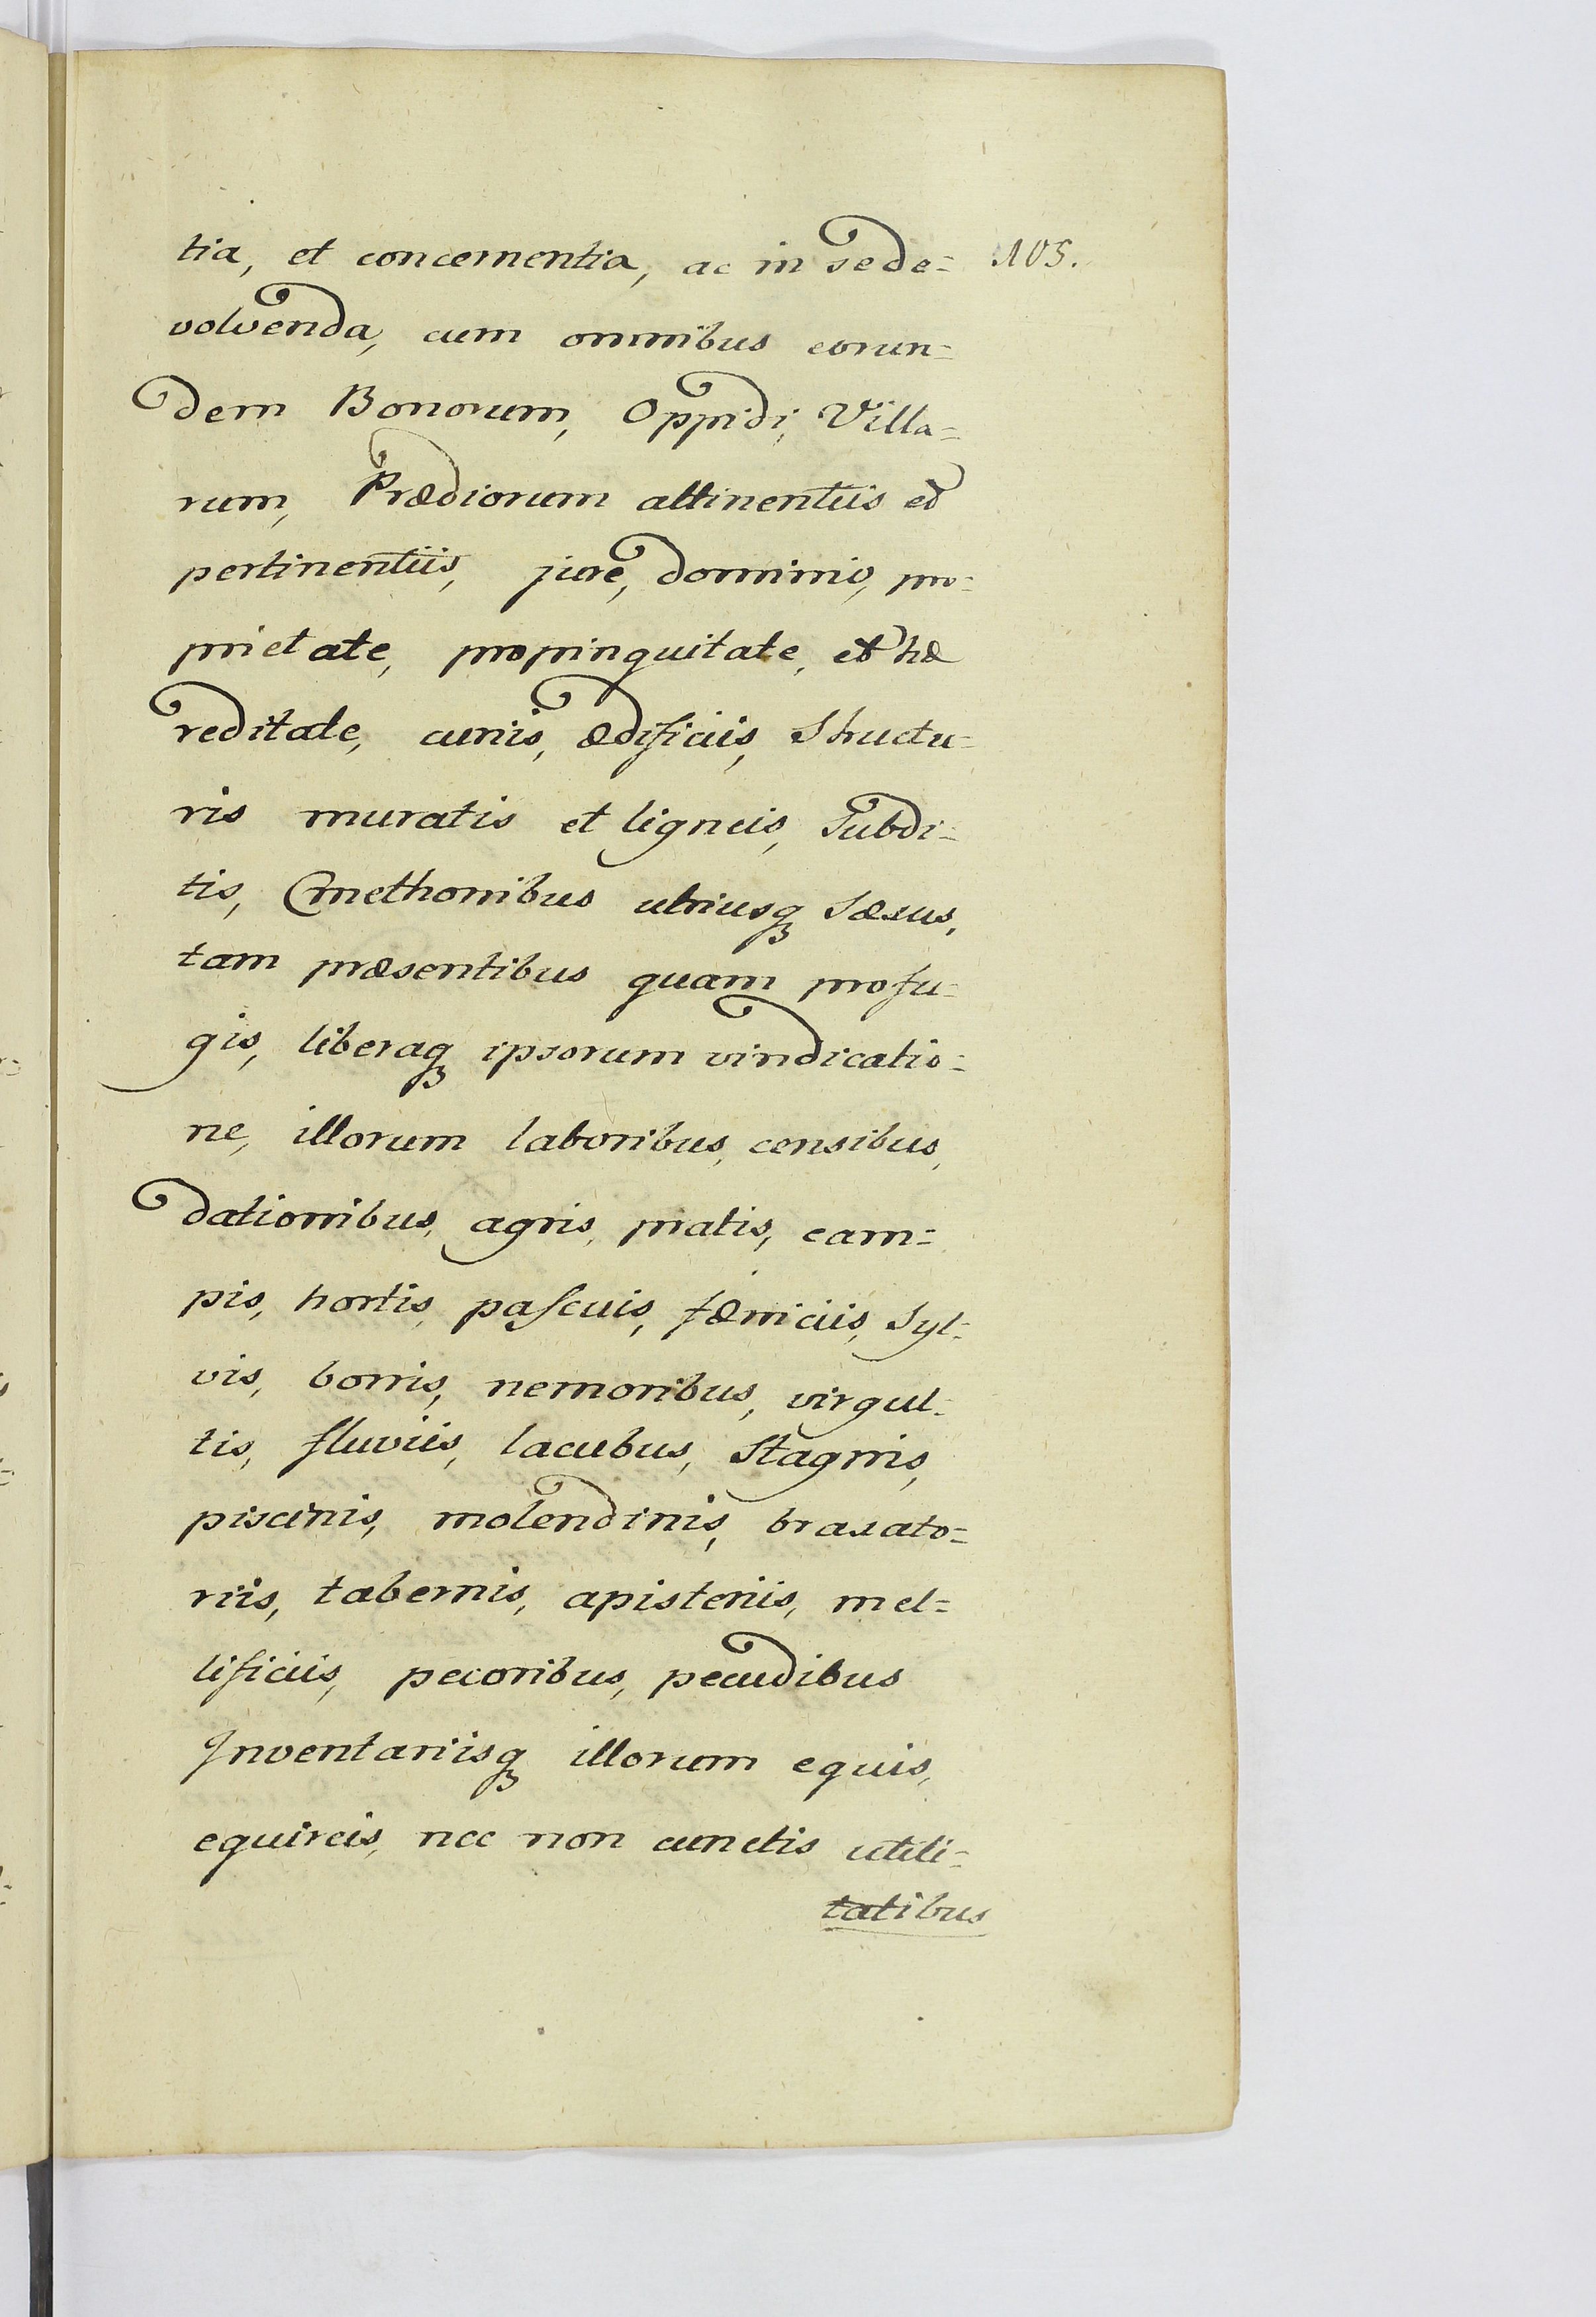 tia, et concernentia, ac in se de= 105.
volvenda, cum omnibus eorun=
dem Bonorum, Oppidi, Villa=
rum, Prædiorum attinentiis et
pertinentiis, jure, dominio, pro=
prietate, propinquitate, et hæ
reditate, curiis, ædificiis, Structu=
ris muratis et ligneis, Subdi=
tis, Cmethonibus utriusq₃ Sæxus,
tam præsentibus quam profu=
gis, liberaq₃ ipsorum vindicatio=
ne, illorum laboribus, censibus,
dationibus, agris, pratis, cam=
pis, hortis, paſcuis, fæniciis, Syl=
vis, borris, nemoribus, virgul=
tis, fluviis, lacubus, Stagnis,
piscinis, molendinis, braxato=
riis, tabernis, apisteriis, mel=
lificiis, pecoribus, pecudibus
Inventariisq₃ illorum equis,
equireis, nec non cunctis utili=
tatibus